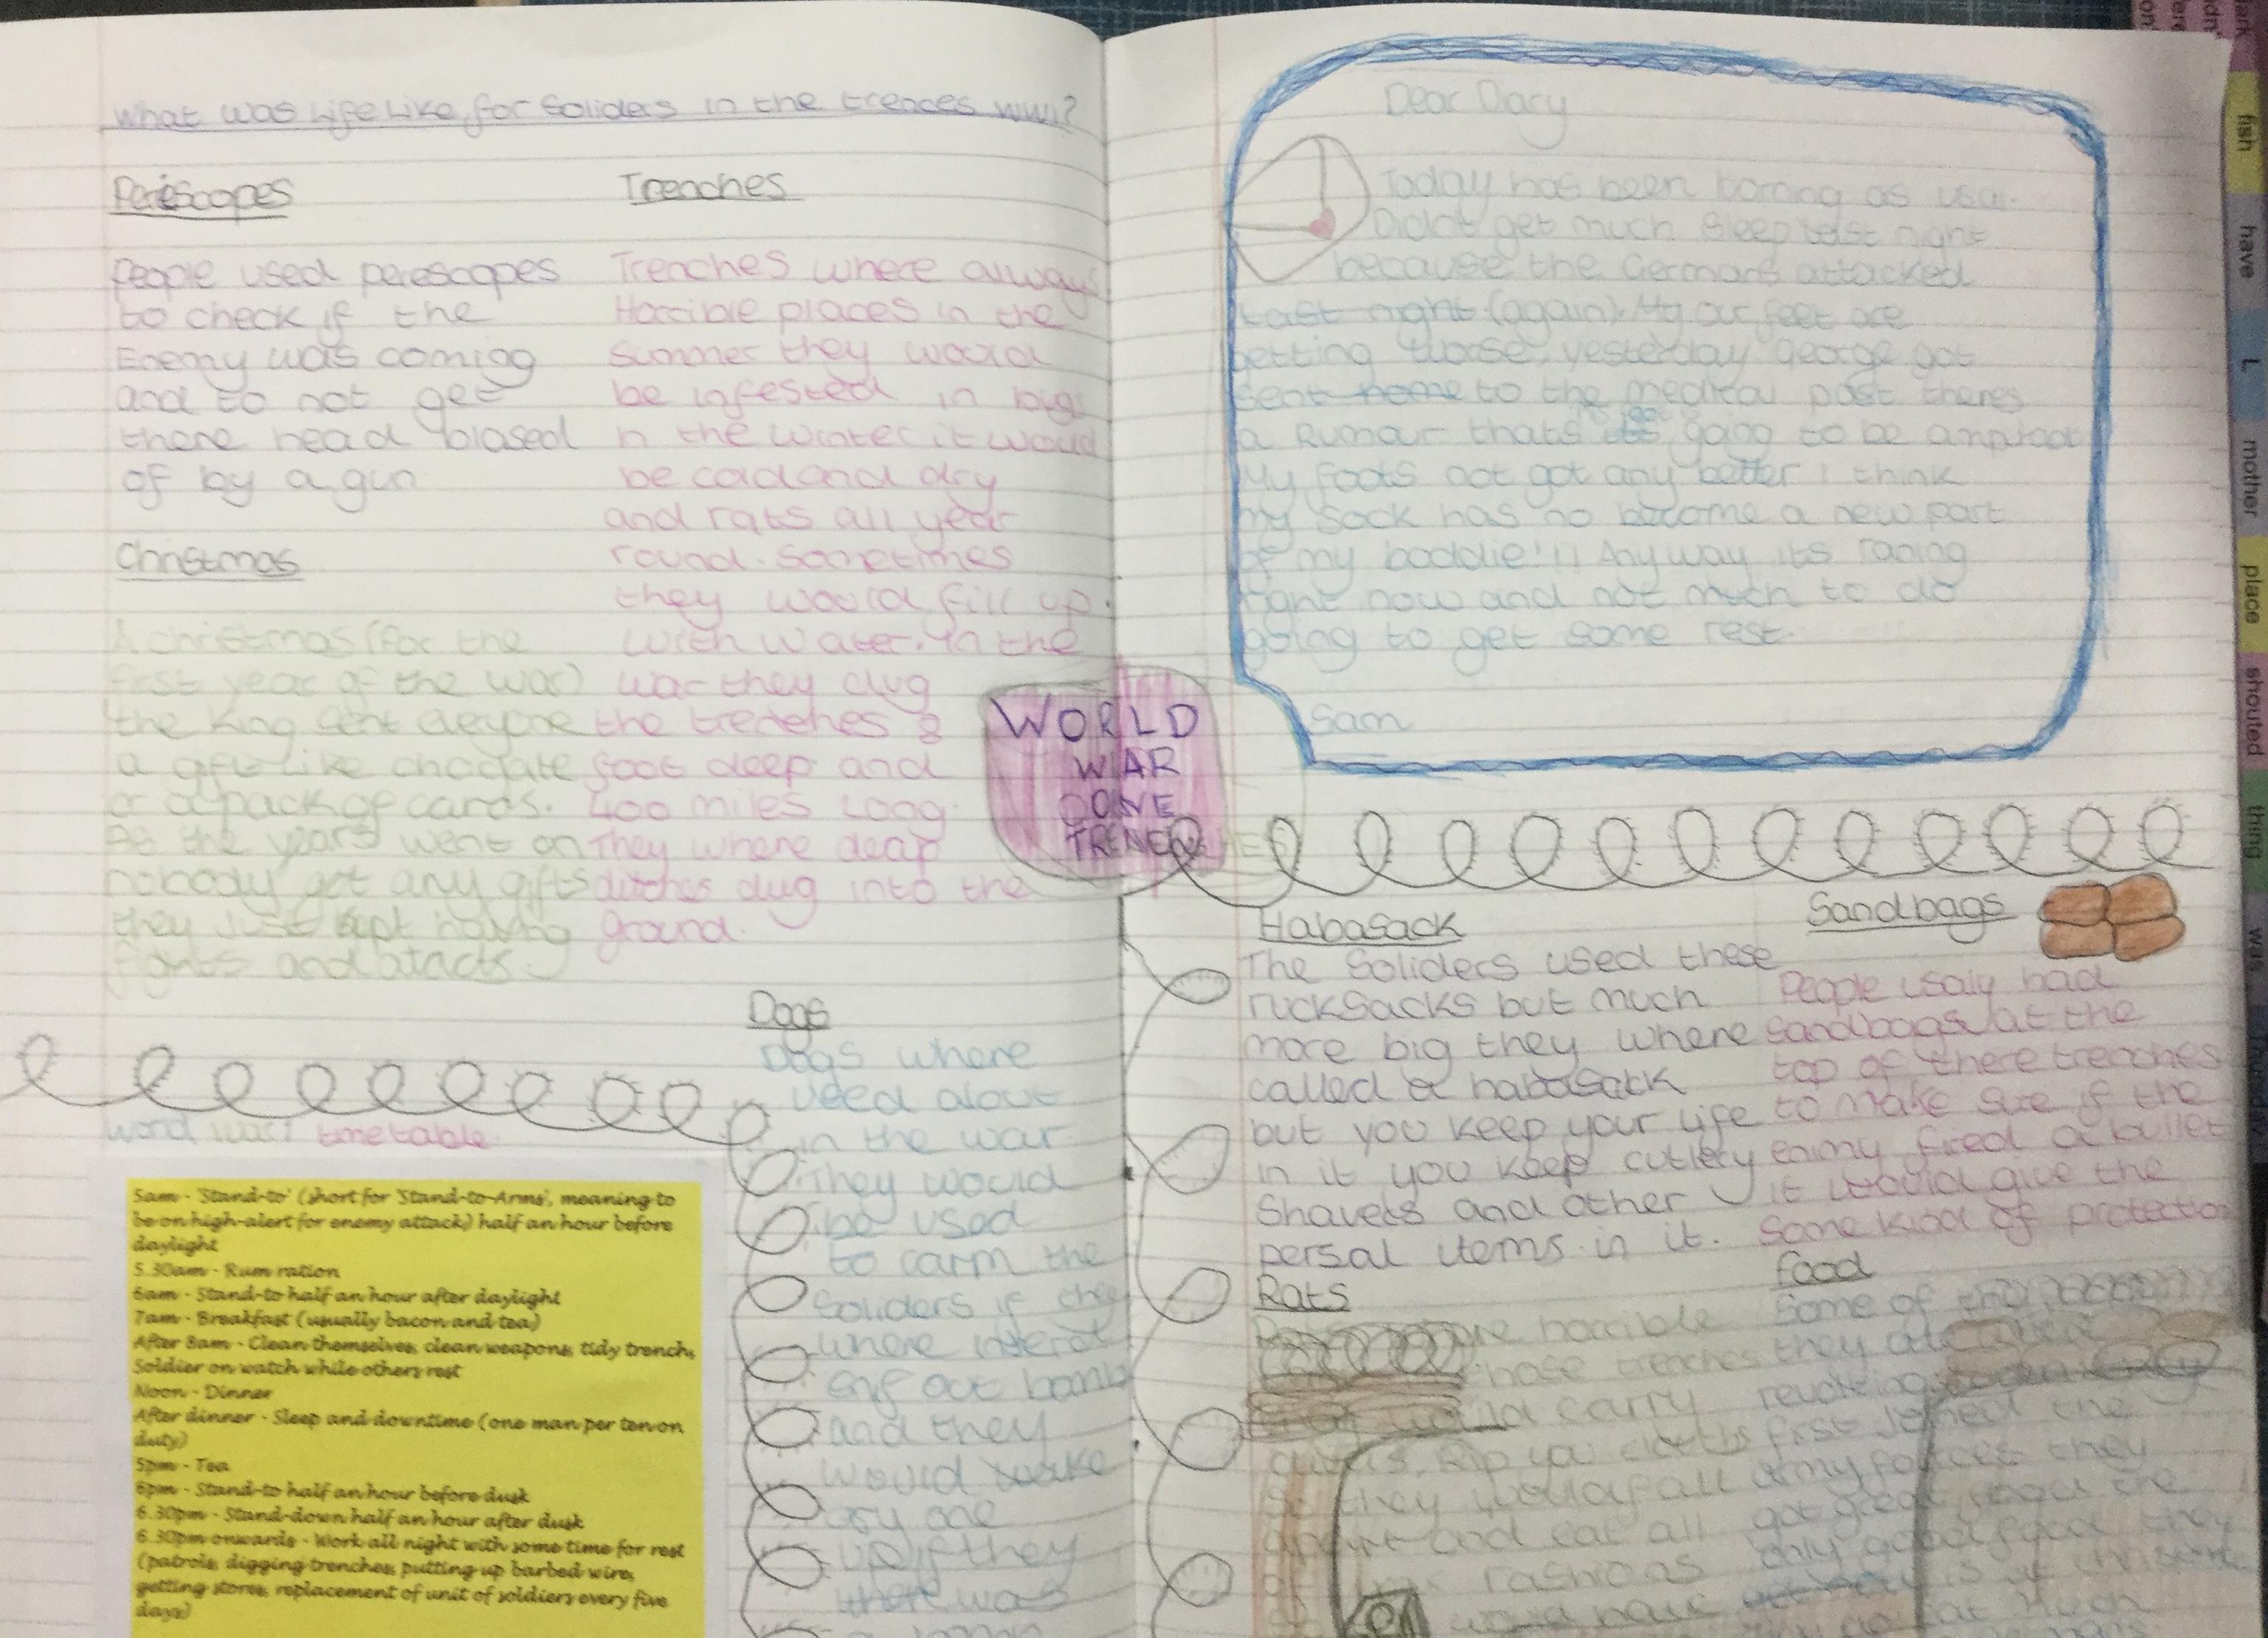 What was Life Like for Soliders in the trences WW1?
Periescopes
People used perescopes
to check if the
Enemy was coming
and to not get
there head blased
of by a gun
Christmas
A christmas (for the
first year of the war)
the King sent eveyone
a gift like choclate
or a pack of cards.
As the years went on
nobody got any gifts
they just kept having
fights and atacts.
Trenches
Trenches where always
Horrible places in the
summer they would
be infested in bugs
in the winter it would
be cold and dry
and rats all year
round. Sometimes
they would fill up
with water. In the
war they dug
the trenches 8
foot deep and
400 miles long.
They where deap
ditches dug into the
ground.
WORLD
WAR
ONE
TRENCHES
Dogs
Dogs where
used alout
in the war
They would
be used
to carm the
Soliders if they
where
out
and they
would
any one
up if they
there was
word war 1 timetable
5am - 'Stand-to' (short for 'Stand-to-Arms', meaning to
be on high-alert for enemy attack) half an hour before
daylight
5.30am - Rum ration
6am - Stand-to half an hour after daylight
7am - Breakfast (usually bacon and tea)
After 8am - Clean themselves, clean weapons, tidy trench,
Soldier on watch while others rest
Noon - Dinner
After dinner - Sleep and downtime (one man per ten on
duty)
5pm - Tea
6pm - Stand-to half an hour before dusk
6.30pm - Stand-down half an hour after dusk
6.30pm onwards - Work all night with some time for rest
(patrols, digging trenches, putting up barbed wire,
getting stores, replacement of unit of soldiers every five
days)
Dear Diary
Today has been borring as usal.
Didnt get much sleep last night
because the Germans attacked
Last night (again). My our feet are
getting worse, yesterday George got
sent home to the medical post theres
a Rumour thats going to be
My foots not got any better I think
my sock has no become a new part
of my boddie!!! Any way its raning
right now and not much to do
going to get some rest.
Sam
Habasack
The Soliders used these
rucksacks but much
more big they where
called a habasack
but you keep your life
in it you keep cutlery
Shavers and other
persal items in it.
Sandbags
People usaly had
sandbags at the
top of there trenches
to make sure if the
enimy fired a bullet
it would give the
some kind of protection
Rats
horrible
those trenches
would carry
Rip you
so they would fall
apart and eat all
of rashions
would have
food
Some of the
they ate
revolting
first joined the
army forces they
got great food the
only good food they
is at christmas
fish
have
L
mother
place
shouted
thing
was